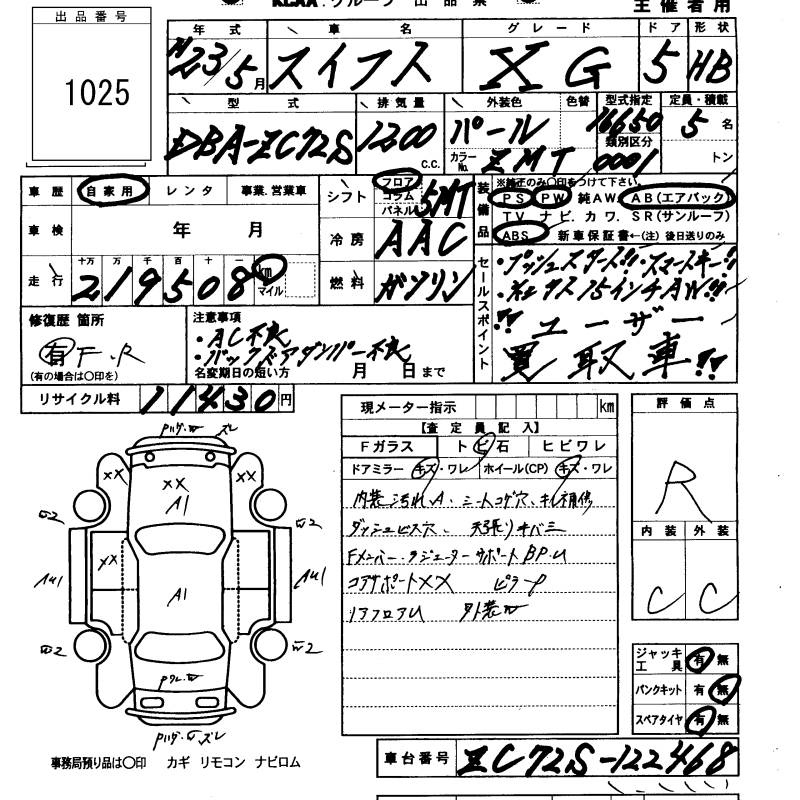 KCAA グループ 出品票
主催者用
出品番号
1025
年式 車名 グレード ドア 形状
H23/5月 スイフス XG 5 HB
型式 排気量 外装色 色替 型式指定 定員・積載
DBA-ZC72S 1200 c.c. パール 16650 5名
類別区分
カラーNo. ZMT 0001 トン
車歴 自家用 レンタ 事業.営業車
車検 年 月
走行 十万 万 千 百 十 一
219508 km マイル
シフト フロア コラム パネル 5MT
冷房 AAC
燃料 ガソリン
装備品
※純正のみ〇印をつけて下さい。
PS PW 純AW AB(エアバック)
TV ナビ.カワ.SR(サンルーフ)
ABS 新車保証書←(注)後日送りのみ
セールスポイント
・プッシュスタート!!・スマートキー!!
15インチAW!!
!!ユーザー
買取車!!
修復歴 箇所
有 F.R
(有の場合は〇印を)
注意事項
・AC不良
・バックドアダンパー不良
名変期日の短い方 月 日まで
リサイクル料 11430円
現メーター指示 km
【査定員記入】
Fガラス トビ石 ヒビワレ
ドアミラー キズ・ワレ ホイール(CP) キズ・ワレ
内装汚れA、シートコゲ穴、キレ補修
ダッシュビス穴、天張りキバミ
Fメンバー・ラジエーターサポートBP.U
コアサポートXX ピラーP
リアフロアU 外装W
評価点
R
内装 外装
C C
ジャッキ工具 有 無
パンクキット 有 無
スペアタイヤ 有 無
XX XX
XX
A1
XX
A1
AU1 AU1
事務局預り品は〇印 カギ リモコン ナビロム
車台番号 ZC72S-122468